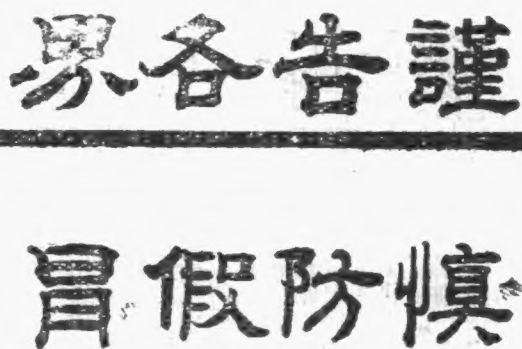 謹告各界
慎防假冒